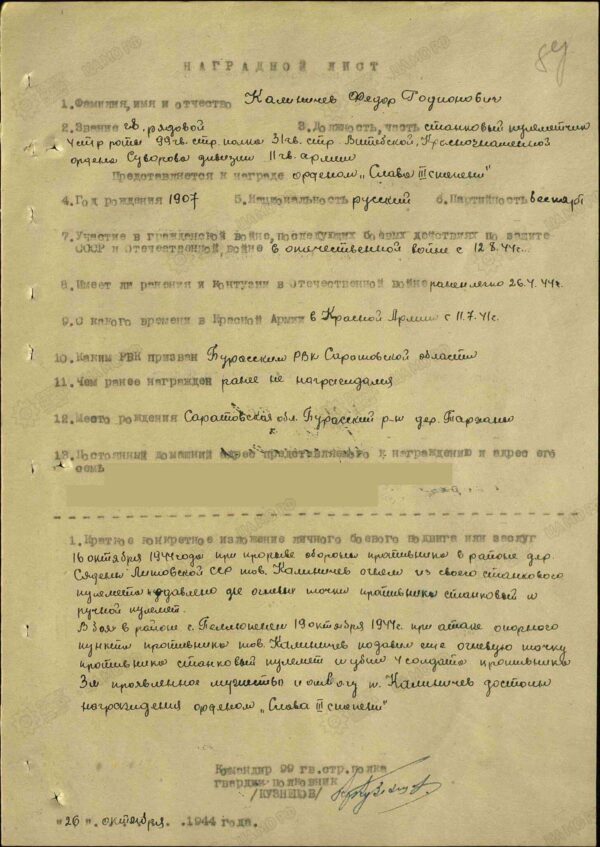 89
НАГРАДНОЙ ЛИСТ
1. Фамилия, имя и отчество Калиничев Федор Родионович
2. Звание гв. рядовой 3. Должность, часть станковый пулеметчик
4 стр роты 99 гв. стр. полка 31 гв. стр. Витебской, Краснознаменной
ордена Суворова дивизии 11 гв. армии
Представляется к награде орденом „Слава III степени"
4. Год рождения 1907 5. Национальность русский 6. Партийность беспарт
7. Участие в гражданской войне, последующих боевых действиях по защите
СССР и Отечественной войне в отечественной войне с 12.8.44г.
8. Имеет ли ранения и контузии в Отечественной войне ранен легко 26.4.44г.
9. С какого времени в Красной Армии в Красной Армии с 11.7.41г.
10. Каким РВК призван Бурасским РВК Саратовской области
11. Чем ранее награжден ранее не награждался
12. Место рождения Саратовская обл. Бурасский р-н дер.
13. Постоянный домашний адрес представляемого к награждению и адрес его
семь
1. Краткое конкретное изложение личного боевого подвига или заслуг
16 октября 1944 года при прорыве обороны противника в районе дер.
Литовской ССР тов. Калиничев огнем из своего станкового
пулемета подавлено две огневые точки противника станковый и
ручной пулемет.
В боях в районе с. 19 октября 1944г. при атаке опорного
пункта противника тов. Калиничев подавил еще огневую точку
противника станковый пулемет и убил 4 солдата противника
За проявленное мужество и отвагу т. Калиничев достоин
награждения орденом „Слава III степени"
Командир 99 гв. стр. полка
гвардии полковник
/КУЗНЕЦОВ/
"26". октября .1944 года.